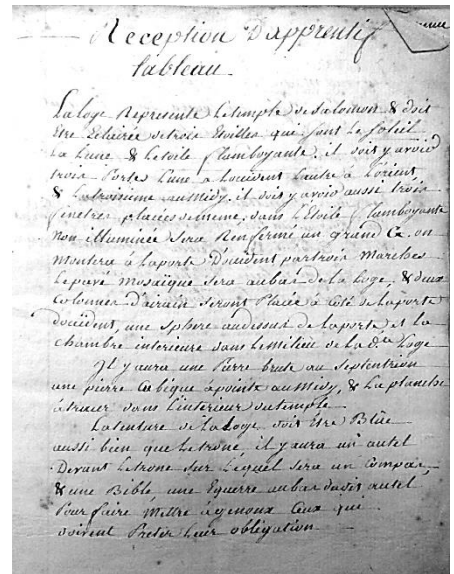 Reception D'apprentif
tableau
La loge Represente Letemple de Salomon & doit
Etre Eclairée de trois Etoilles que sont Le Soleil
La Lune & Letoile flamboyante. il doit y avoir
trois Portes Lune a Loccident Lautre a Lorient,
& Latroisieme au Midy. il doit y avoir aussi trois
fenetres placées de meme. dans L'Etoile flamboyante
non illuminée sera Renfermé un grand G. on
Montera à Laporte Doccident par trois Marches
Lepavé Mosaïque sera au bas de La Loge, & deux
Colonnes d'airain seront Placée a coté de Laporte
doccident, une Sphere au dessus de Laporte et La
Chambre interieure dans Lemilieu de La dte Loge
Il y aura une Pierre brute au Septentrion
une pierre Cubique a pointe au Midy, & La planche
a tracer dans L'interieur du temple
La tenture de La Loge doit Etre Blüe
aussi bien que Le trone, il y aura un autel
Devant Le trone sur Lequel sera un Compas,
& une Bible, une Equerre au bas dudit autel
Pour faire Mettre a genoux Ceux que
doivent Preter Leur obligation